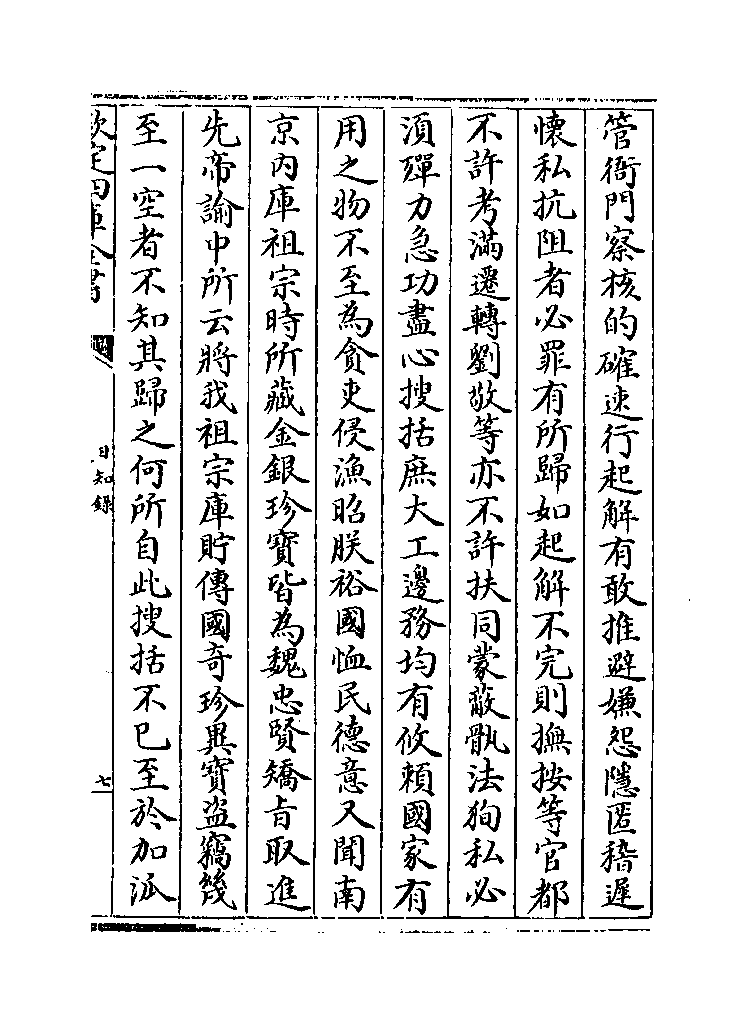 管衙門察核的確速行起解有敢推避嫌怨隱匿稽遲
懷私抗阻者必罪有所歸如起解不完則撫按等官都
不許考滿遷轉劉敬等亦不許扶同蒙蔽骫法狥私必
湏殫力急功盡心搜括庶大工邊務均有攸頼國家有
用之物不至為貪吏侵漁昭朕裕國恤民德意又聞南
京内庫祖宗時所藏金銀珍寶皆為魏忠賢矯旨取進
先帝諭中所云將我祖宗庫貯傳國奇珍異寶盗竊幾
至一空者不知其歸之何所自此搜括不已至於加派
欽定四庫全書
日知錄
七